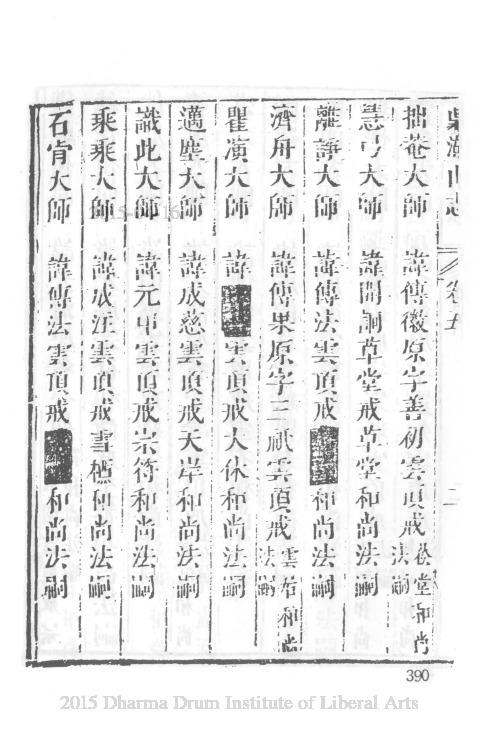 山志 卷五 二
拙菴大師 諱傳徽原字善初雲頂戒 堂和尚法嗣
慧弓大師 諱開詗草堂戒草堂和尚法嗣
離諍大師 諱傳法雲頂戒 和尚法嗣
濟舟大師 諱傳果原字三祇雲頂戒 雲 和尚法嗣
瞿演大師 諱 雲頂戒大休和尚法嗣
邁塵大師 諱成慈雲頂戒天岸和尚法嗣
識此大師 諱元 雲頂戒宗符和尚法嗣
乘乘大師 諱成汪雲頂戒雪 和尚法嗣
石肯大師 諱傳法雲頂戒 和尚法嗣
390
2015 Dharma Drum Institute of Liberal Arts